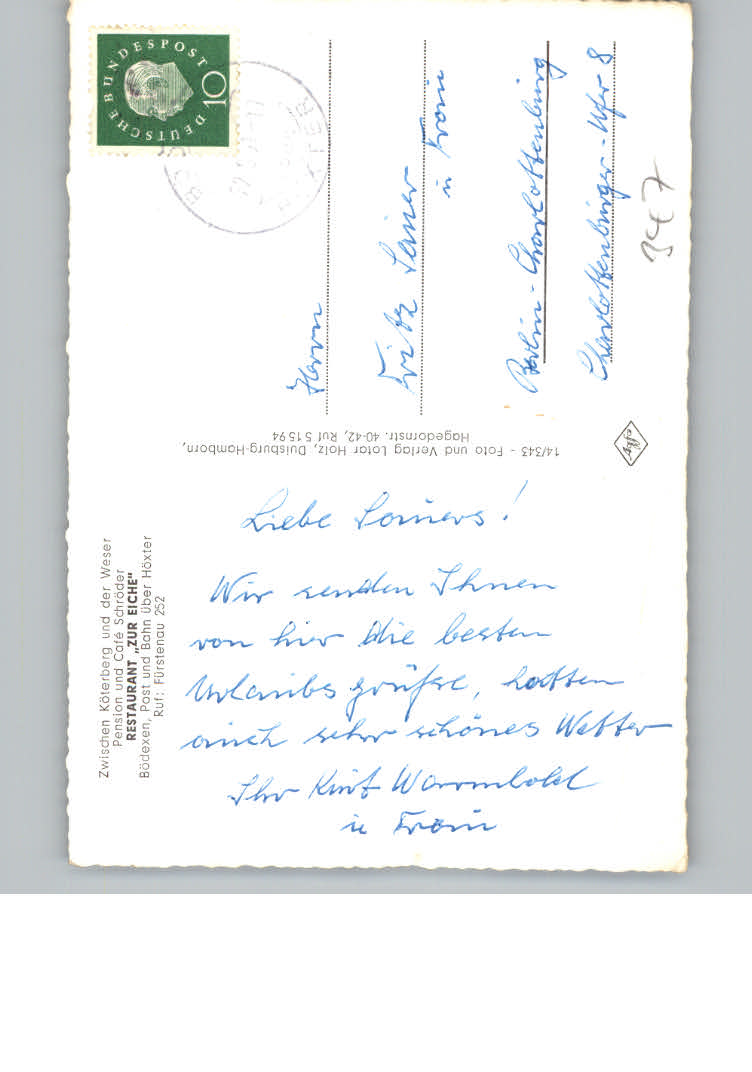 Zwischen Köterberg und der Weser
Pension und Café Schröder
RESTAURANT „ZUR EICHE"
Bödexen, Post und Bahn über Höxter
Ruf: Fürstenau 252
Liebe Leiners!
Wir senden Ihnen
von hier die besten
Urlaubsgrüße, hatten
auch sehr schönes Wetter
Ihr Kurt Warmbold
u Frau
14/343 - Foto und Verlag Lotar Holz, Duisburg-Hamborn,
Hagedornstr. 40-42, Ruf 5 15 94
DEUTSCHE BUNDESPOST
10
Herrn
Fritz Leiner
u Frau
Berlin-Charlottenburg
Charlottenburger-Ufer 8
347